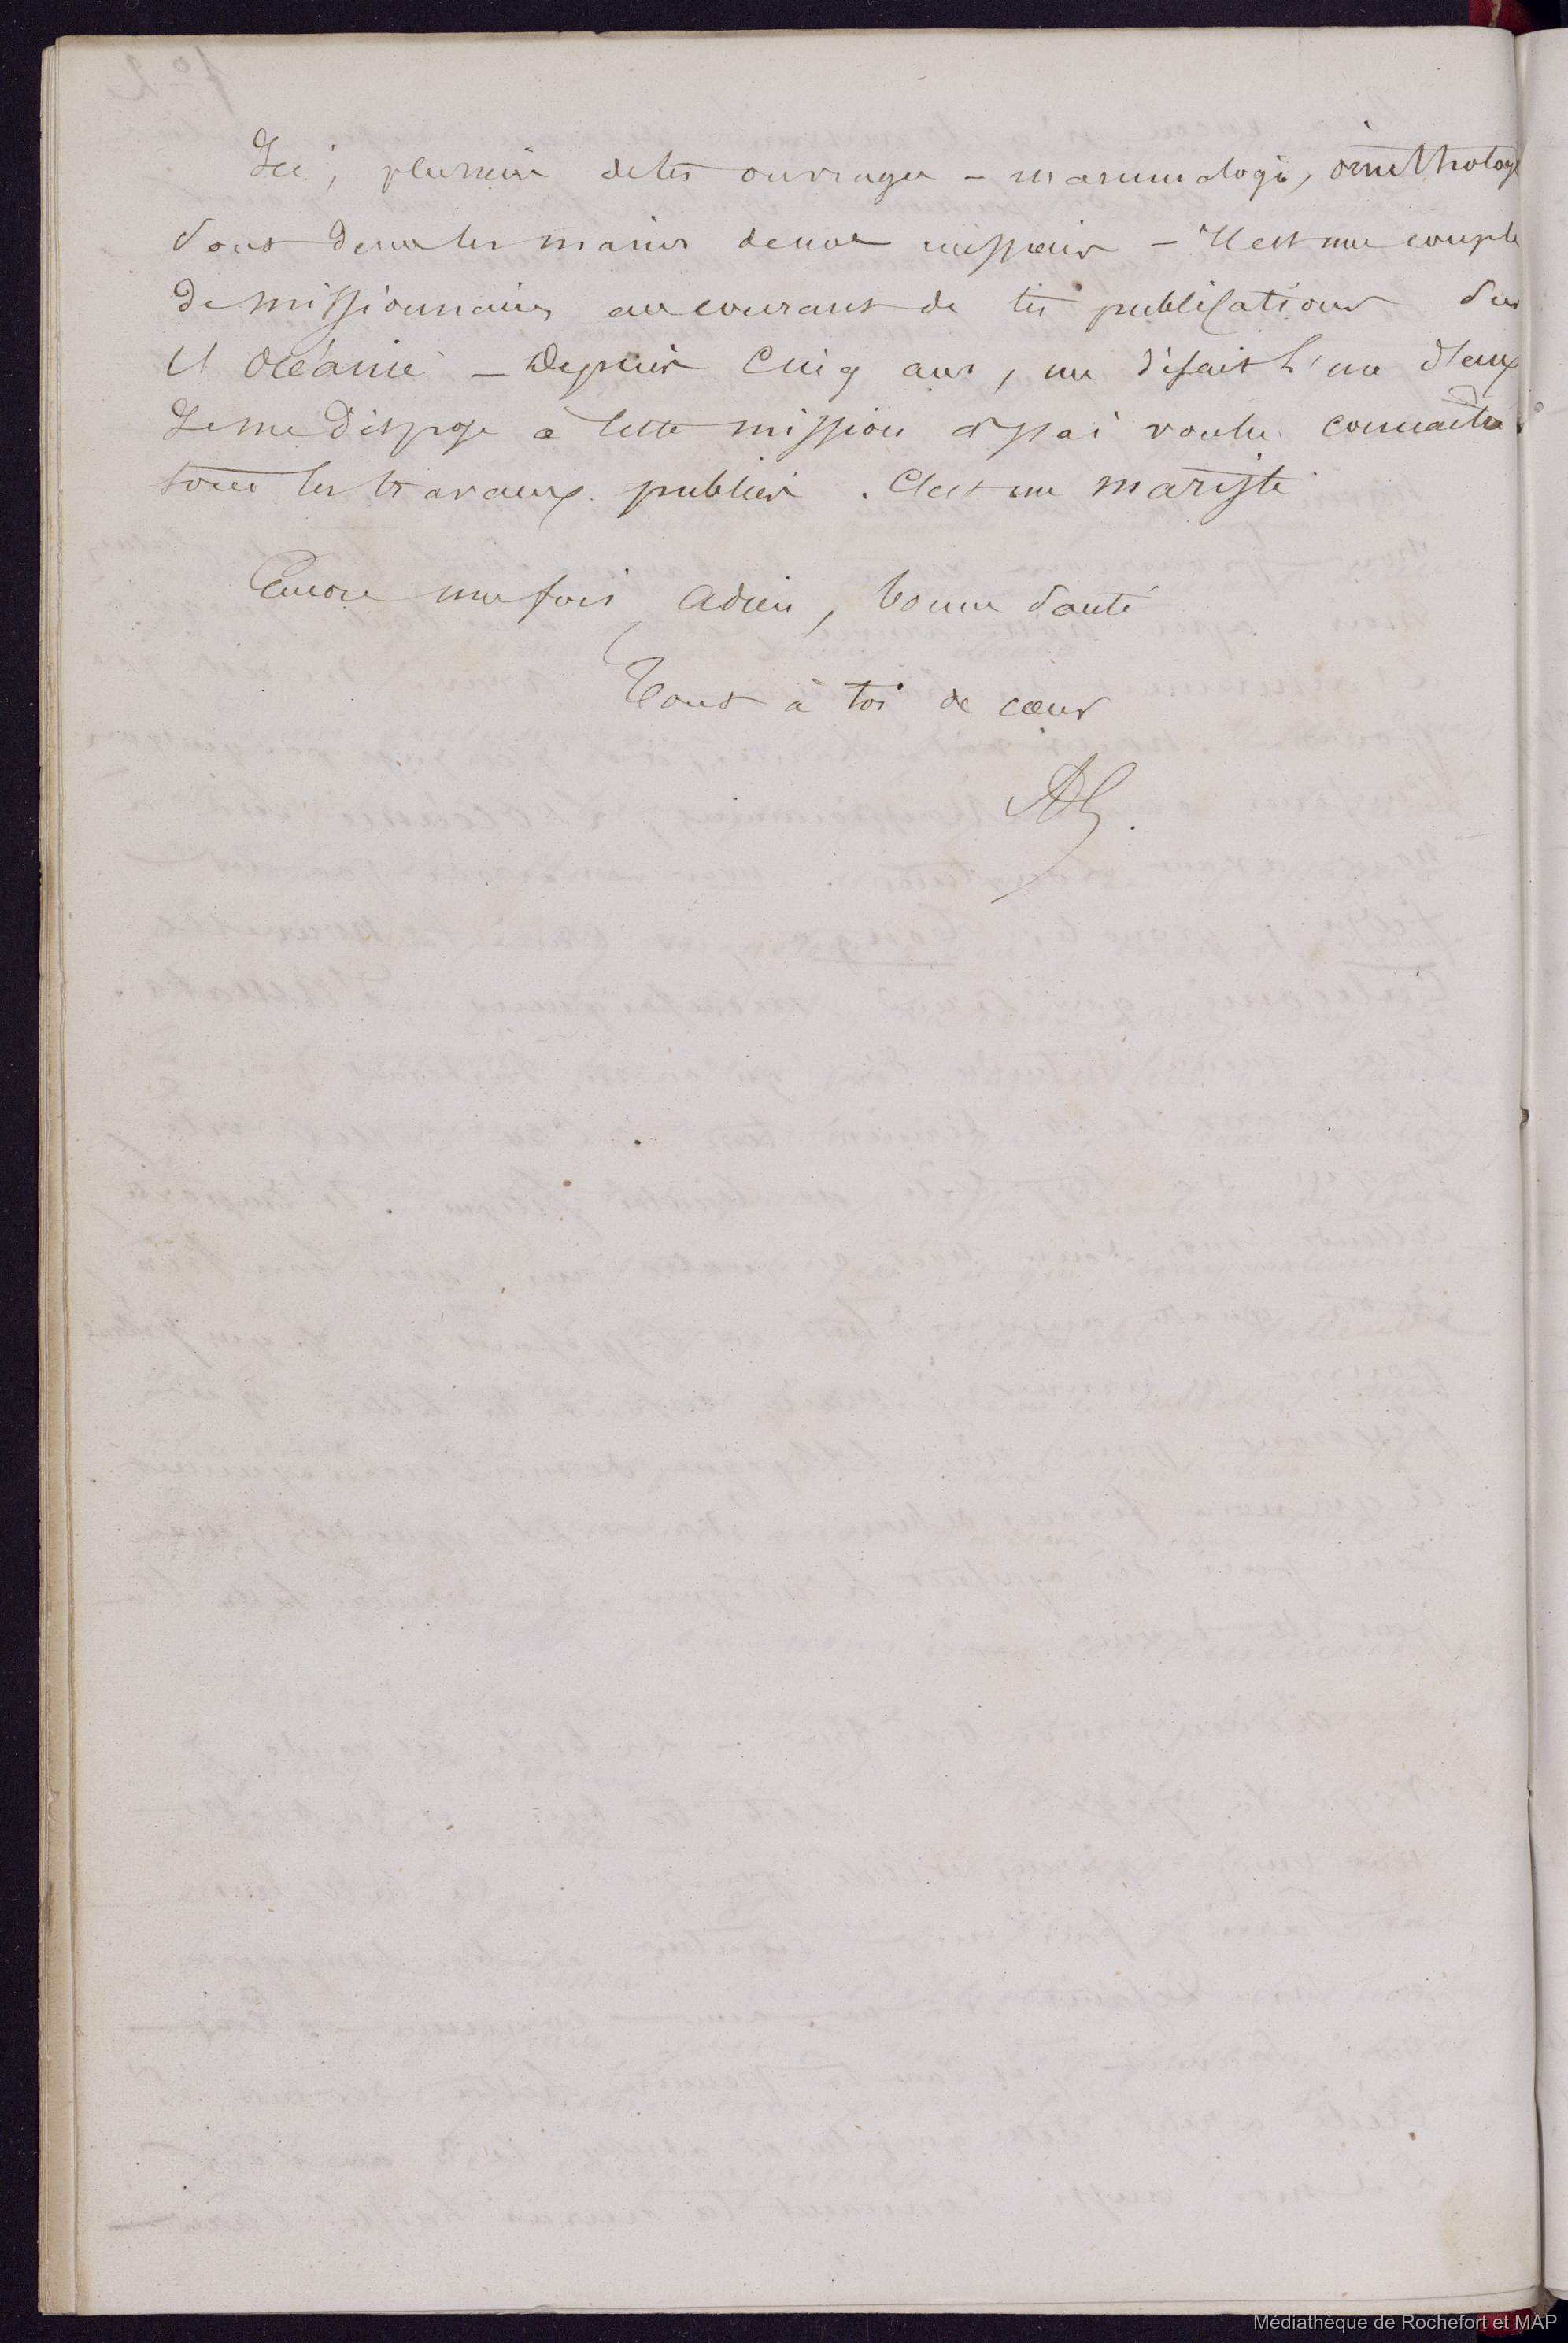 Ici, plusieurs de tes ouvrages - mammalogie, ornithologie
sont dans les mains de nos - Il est un couple
de missionnaires au courant de tes publications sur
l'océanie - Depuis cinq ans, me disait l'un d'eux
Je me dispose à cette mission et j'ai voulu connaitre
tous les travaux publiés. C'est un mariste
Encore une fois, adieu, bonne santé
Tout à toi de cœur
Médiathèque de Rochefort et MAP